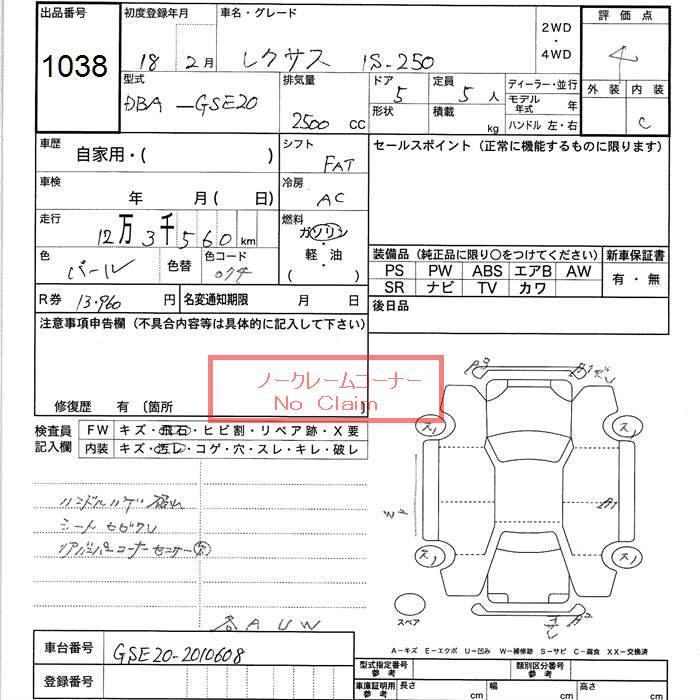 出品番号
1038
初度登録年月
18 2月
車名・グレード
レクサス IS-250
2WD
・
4WD
評価点
4
外装 内装
C
型式
DBA-GSE20
排気量
2500 cc
ドア
5
形状
定員
5 人
積載
kg
ディーラー・並行
モデル年式 年
ハンドル 左・右
車歴
自家用・( )
シフト
FAT
セールスポイント (正常に機能するものに限ります)
車検
年 月 ( 日)
冷房
AC
走行
12万 3千560 km
燃料
ガソリン
・
軽・油
( )
色
パール
色替
色コード
074
装備品 (純正品に限り〇をつけてください)
PS PW ABS エアB AW
SR ナビ TV カワ
新車保証書
有・無
R券 13.960 円
名変通知期限 月 日
後日品
注意事項申告欄 (不具合内容等は具体的に記入して下さい)
ノークレームコーナー
No Claim
修復歴 有 〔箇所 〕
検査員記入欄
FW キズ・飛石・ヒビ割・リペア跡・X要
内装 キズ・汚レ・コゲ・穴・スレ・キレ・破レ
シート
リアバンパーコーナーセンサー
各AUW
A1
A2
スペア
A-キズ E-エクボ U-凹み W-補修跡 S-サビ C-腐食 XX-交換済
車台番号
GSE20-2010608
登録番号
型式指定番号 参考
類別区分番号 参考
車庫証明用 参考
長さ cm
幅 cm
高さ cm